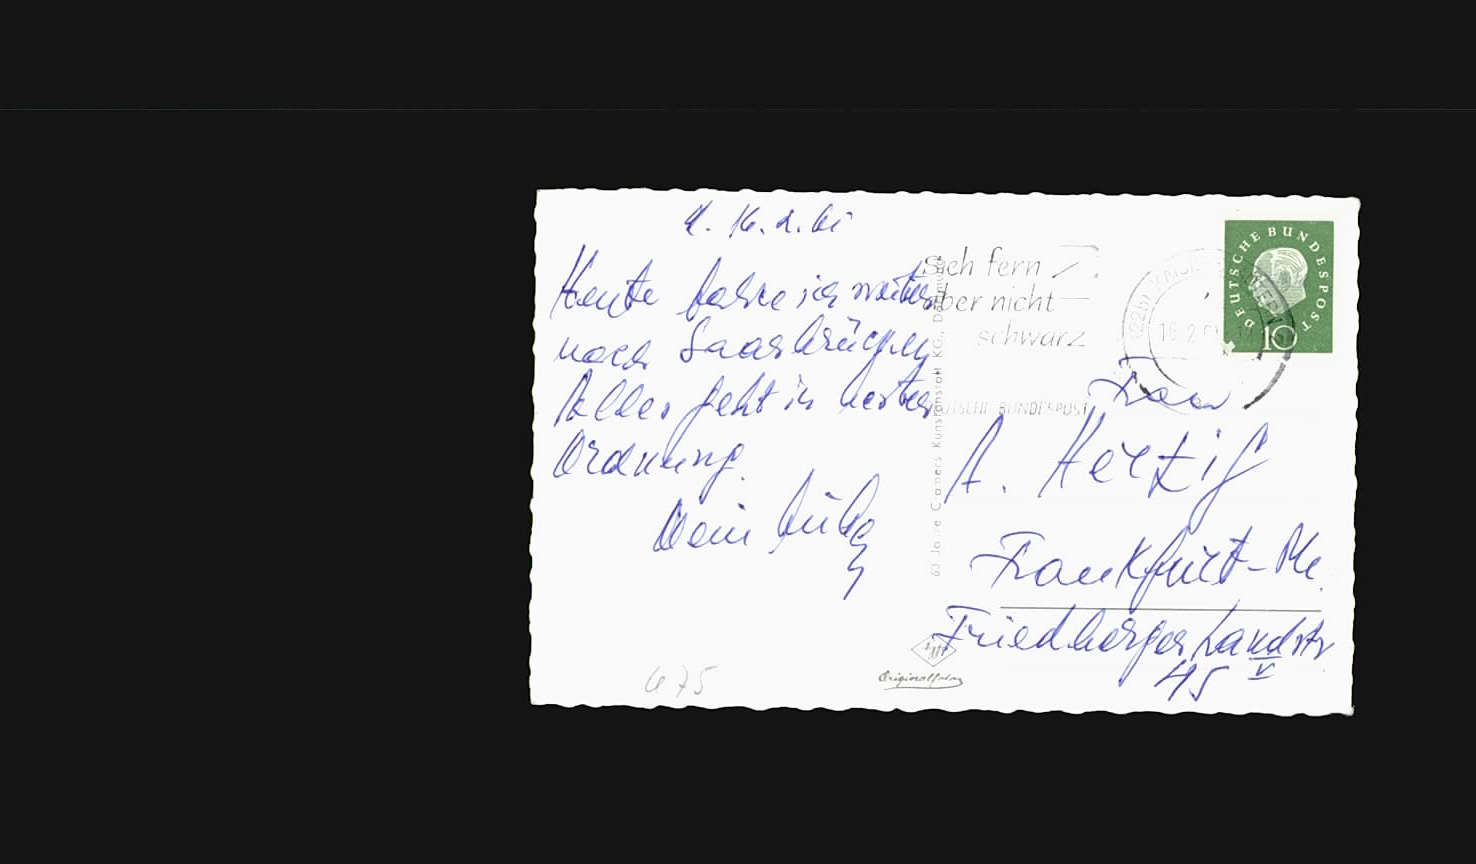 16.2.61
Heute fahre ich weiter
nach Saarbrücken
Alles geht in bester
Ordnung.
Dein
Sieh fern
aber nicht
schwarz
DEUTSCHE BUNDESPOST
16.2.61
DEUTSCHE BUNDESPOST
10
60 Jahre Cramers Kunstanstalt KG., Dortmund
Frau
A. Hertzig
Frankfurt-M.
Friedberger Landstr
45 V
Originalfoto
675